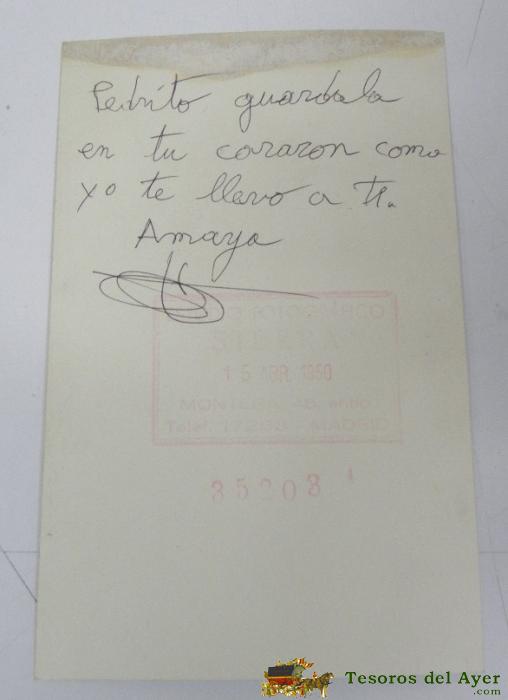 Pedrito guardala
en tu corazon como
yo te llevo a ti.
Amaya
FOTOGRAFICO
15 ABR. 1950
MONTERA, 48, entlo.
Telef. 17203 - MADRID
35203
Tesoros del Ayer
.com